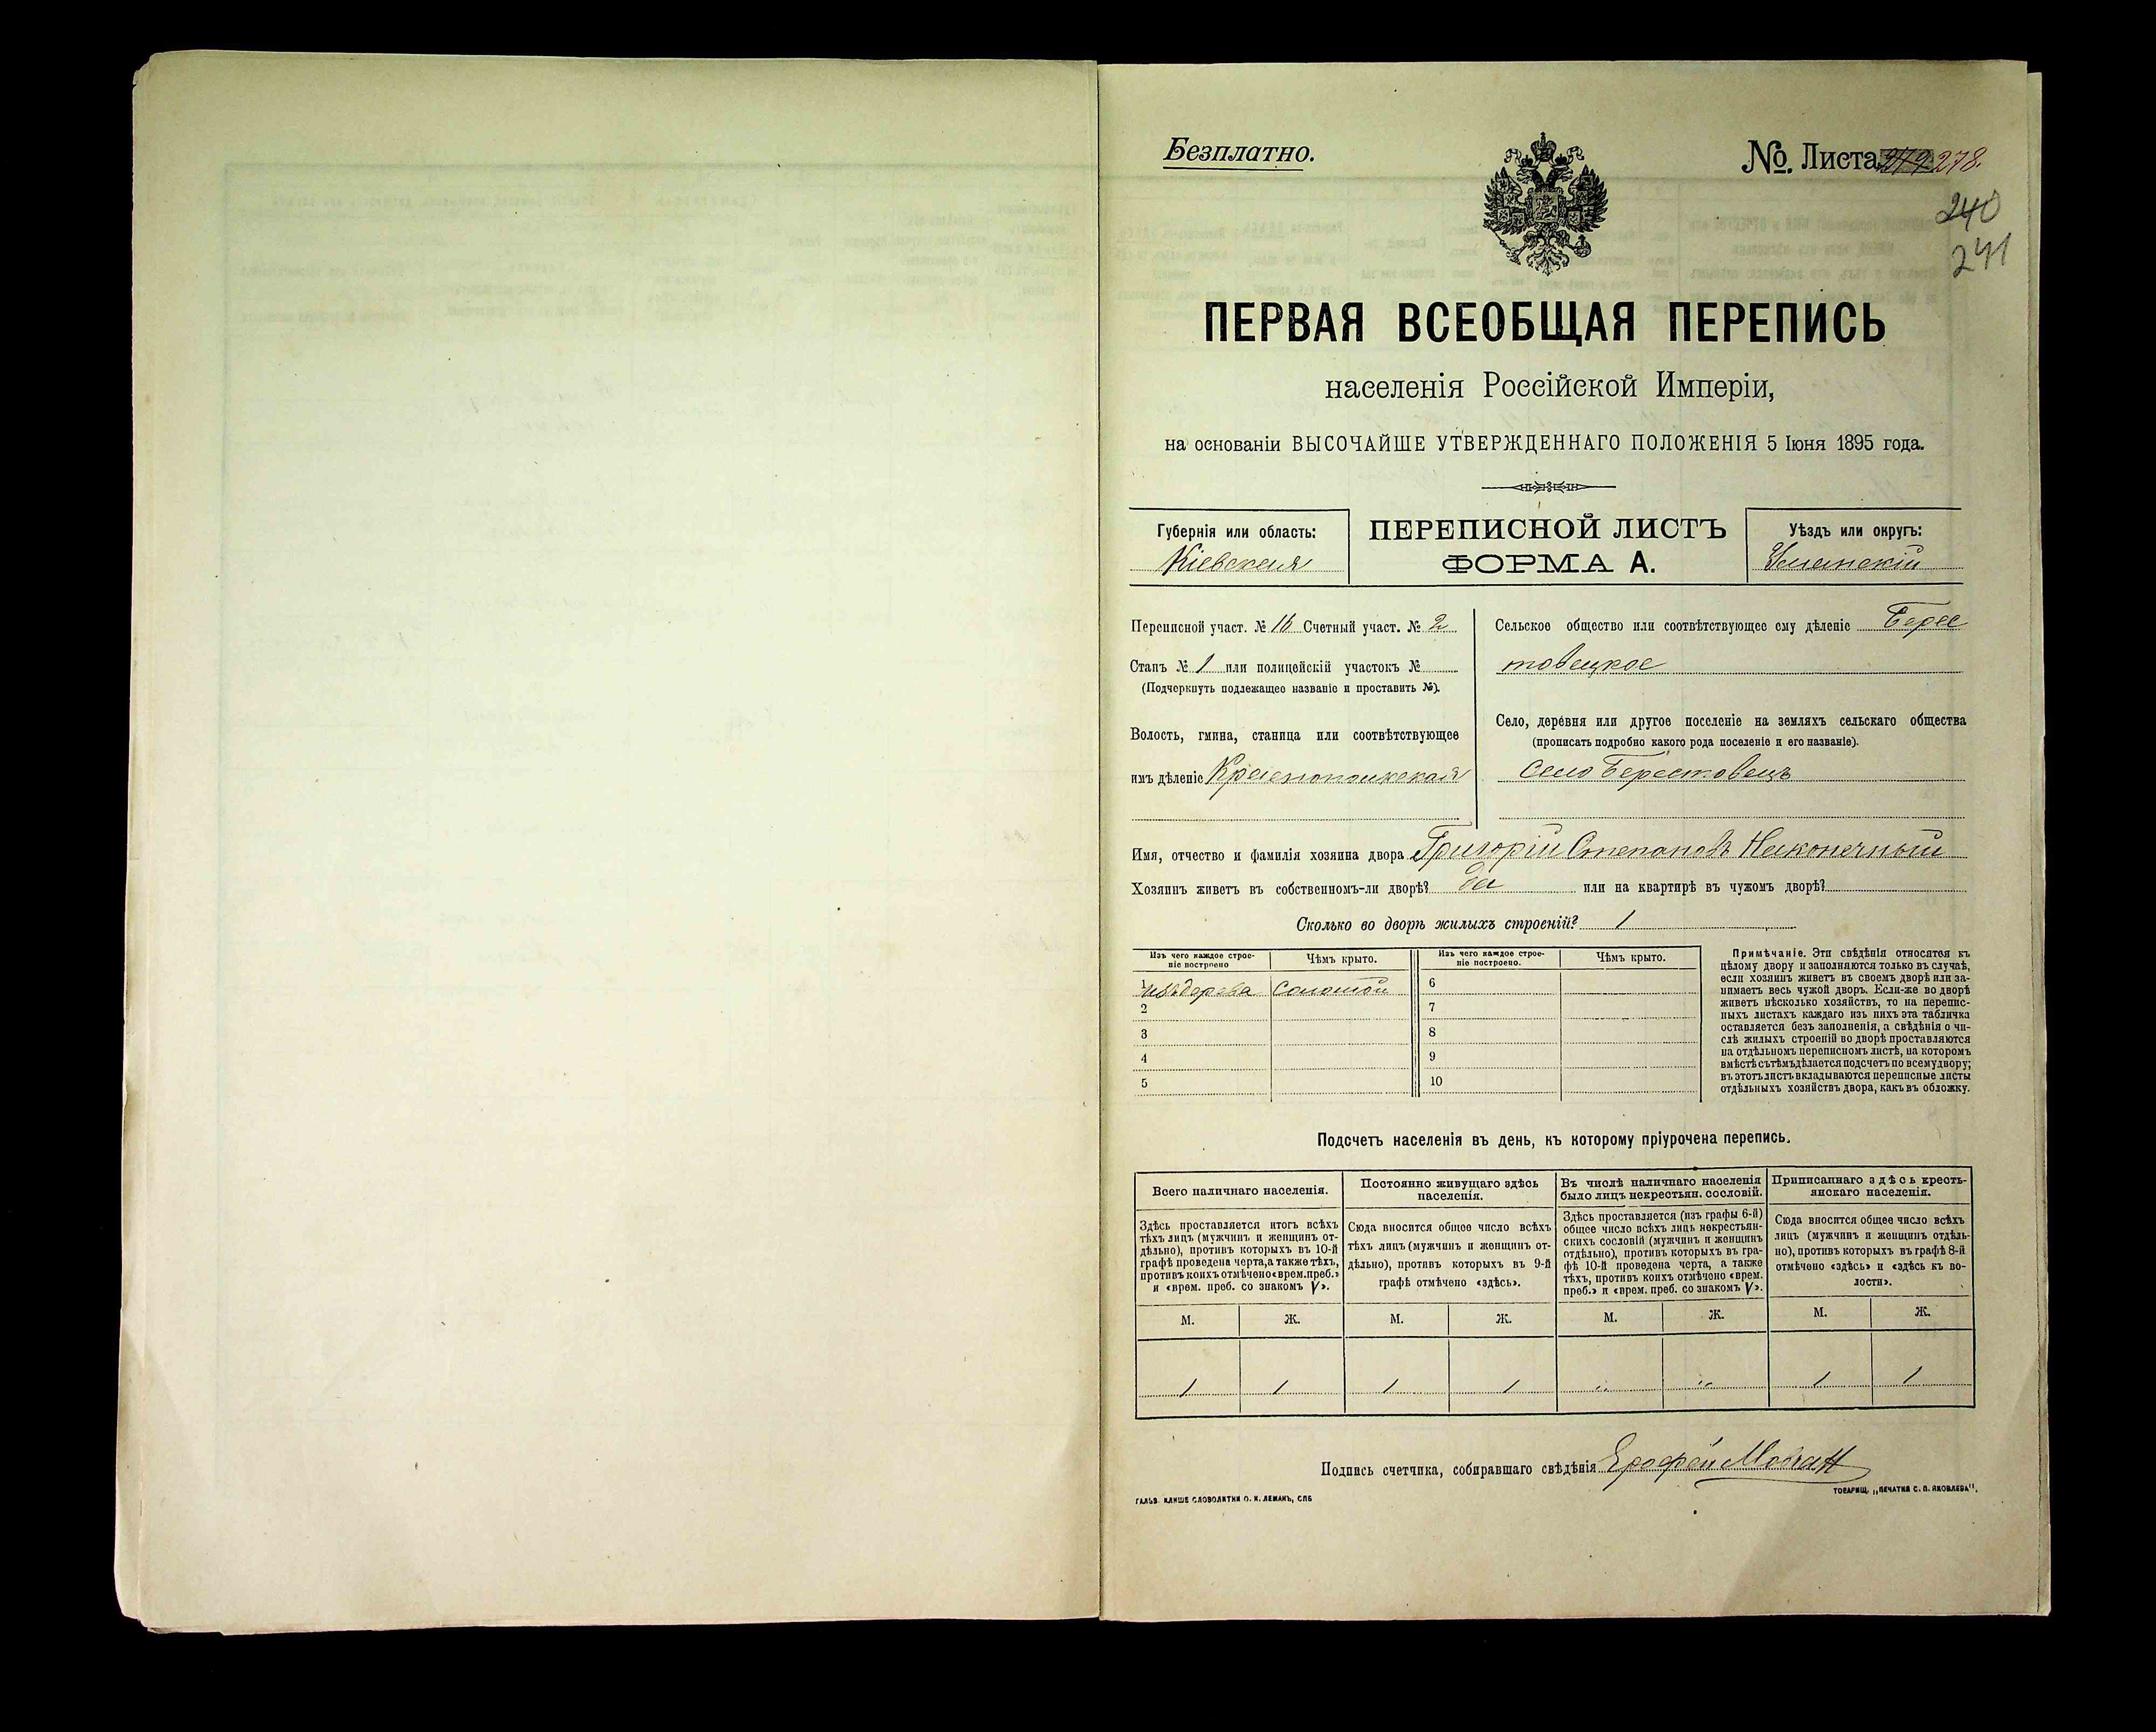 Безплатно.
№. Листа 278.
240
241
ПЕРВАЯ ВСЕОБЩАЯ ПЕРЕПИСЬ
населенія Россійской Имперіи,
на основаніи ВЫСОЧАЙШЕ УТВЕРЖДЕННАГО ПОЛОЖЕНІЯ 5 Іюня 1895 года.
Губернія или область:
Кіевская
ПЕРЕПИСНОЙ ЛИСТЪ
ФОРМА А.
Уѣздъ или округъ:
Уманскій
Переписной участ. № 16 Счетный участ. № 2
Станъ № 1 или полицейскій участокъ №
(Подчеркнуть подлежащее названіе и проставить №).
Волость, гмина, станица или соотвѣтствующее
имъ дѣленіе Краснопольская
Сельское общество или соотвѣтствующее ему дѣленіе Берес
товецкое
Село, деревня или другое поселеніе на земляхъ сельскаго общества
(прописать подробно какого рода поселеніе и его названіе).
Село Берестовецъ
Имя, отчество и фамилія хозяина двора Григорій Степановъ Наконечный
Хозяинъ живетъ въ собственномъ-ли дворѣ? да или на квартирѣ въ чужомъ дворѣ?
Сколько во дворѣ жилыхъ строеній? 1
Изъ чего каждое строе-
ніе построено
Чѣмъ крыто.
Изъ чего каждое строе-
ніе построено.
Чѣмъ крыто.
1 изъ дерева Соломой 6
2 7
3 8
4 9
5 10
Примѣчаніе. Эти свѣдѣнія относятся къ
цѣлому двору и заполняются только въ случаѣ,
если хозяинъ живетъ въ своемъ дворѣ или за-
нимаетъ весь чужой дворъ. Если-же во дворѣ
живетъ нѣсколько хозяйствъ, то на перепис-
ныхъ листахъ каждаго изъ нихъ эта табличка
оставляется безъ заполненія, а свѣдѣнія о чи-
слѣ жилыхъ строеній во дворѣ проставляются
на отдѣльномъ переписномъ листѣ, на которомъ
вмѣстѣ съ тѣмъ дѣлается подсчетъ по всему двору;
въ этотъ листъ вкладываются переписные листы
отдѣльныхъ хозяйствъ двора, какъ въ обложку.
Подсчетъ населенія въ день, къ которому пріурочена перепись.
Всего наличнаго населенія.
Здѣсь проставляется итогъ всѣхъ
тѣхъ лицъ (мужчинъ и женщинъ от-
дѣльно), противъ которыхъ въ 10-й
графѣ проведена черта, а также тѣхъ,
противъ коихъ отмѣчено «врем. преб.»
и «врем. преб. со знакомъ V».
Постоянно живущаго здѣсь
населенія.
Сюда вносится общее число всѣхъ
тѣхъ лицъ (мужчинъ и женщинъ от-
дѣльно), противъ которыхъ въ 9-й
графѣ отмѣчено «здѣсь».
Въ числѣ наличнаго населенія
было лицъ некрестьян. сословій.
Здѣсь проставляется (изъ графы 6-й)
общее число всѣхъ лицъ некрестьян-
скихъ сословій (мужчинъ и женщинъ
отдѣльно), противъ которыхъ въ гра-
фѣ 10-й проведена черта, а также
тѣхъ, противъ коихъ отмѣчено «врем.
преб.» и «врем. преб. со знакомъ V».
Приписаннаго здѣсь кресть-
янскаго населенія.
Сюда вносится общее число всѣхъ
лицъ (мужчинъ и женщинъ отдѣль-
но), противъ которыхъ въ графѣ 8-й
отмѣчено «здѣсь» и «здѣсь къ во-
лости».
М. Ж. М. Ж. М. Ж. М. Ж.
1 1 1 1 „ „ 1 1
Подпись счетчика, собиравшаго свѣдѣнія Ерофей Мовчан
ГАЛЬВ. КЛИШЕ СЛОВОЛИТНИ О. И. ЛЕМАНЪ, СПБ
ТОВАРИЩ. „ПЕЧАТНЯ С. П. ЯКОВЛЕВА".